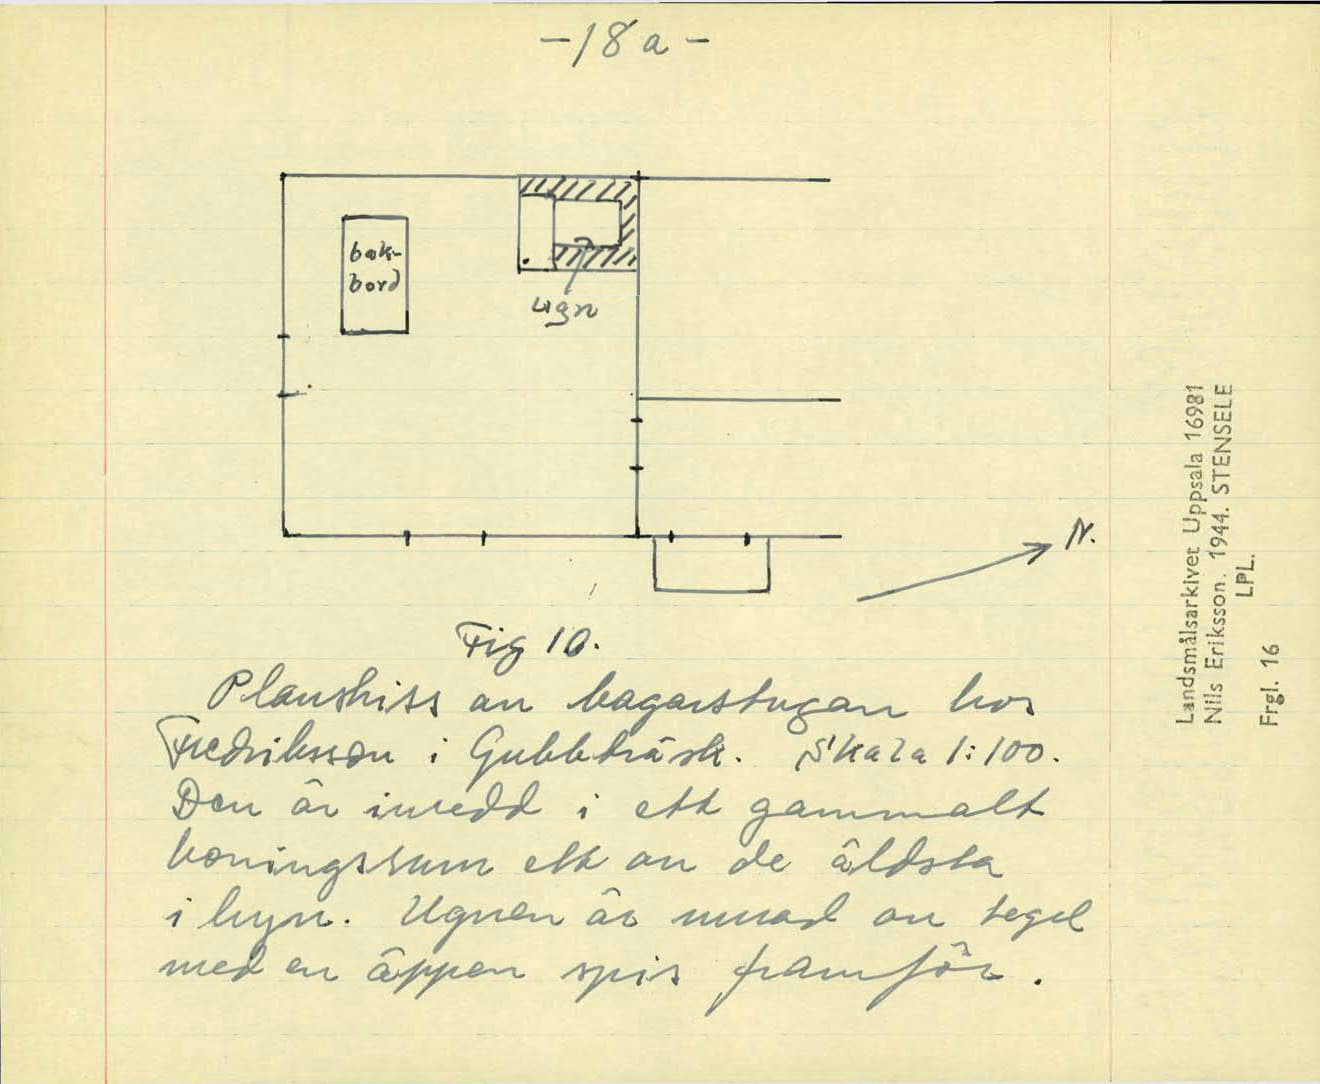 -18a-
bak-
bord
ugn
N.
Fig 10.
Planskiss av bagarstugan hos
Fredriksson i Gubbträsk. Skala 1:100.
Den är inredd i ett gammalt
boningsrum ett av de äldsta
i byn. Ugnen är murad av tegel
med en öppen spis framför.
Landsmålsarkivet Uppsala 16981
Nils Eriksson. 1944. STENSELE
LPL.
Frgl. 16